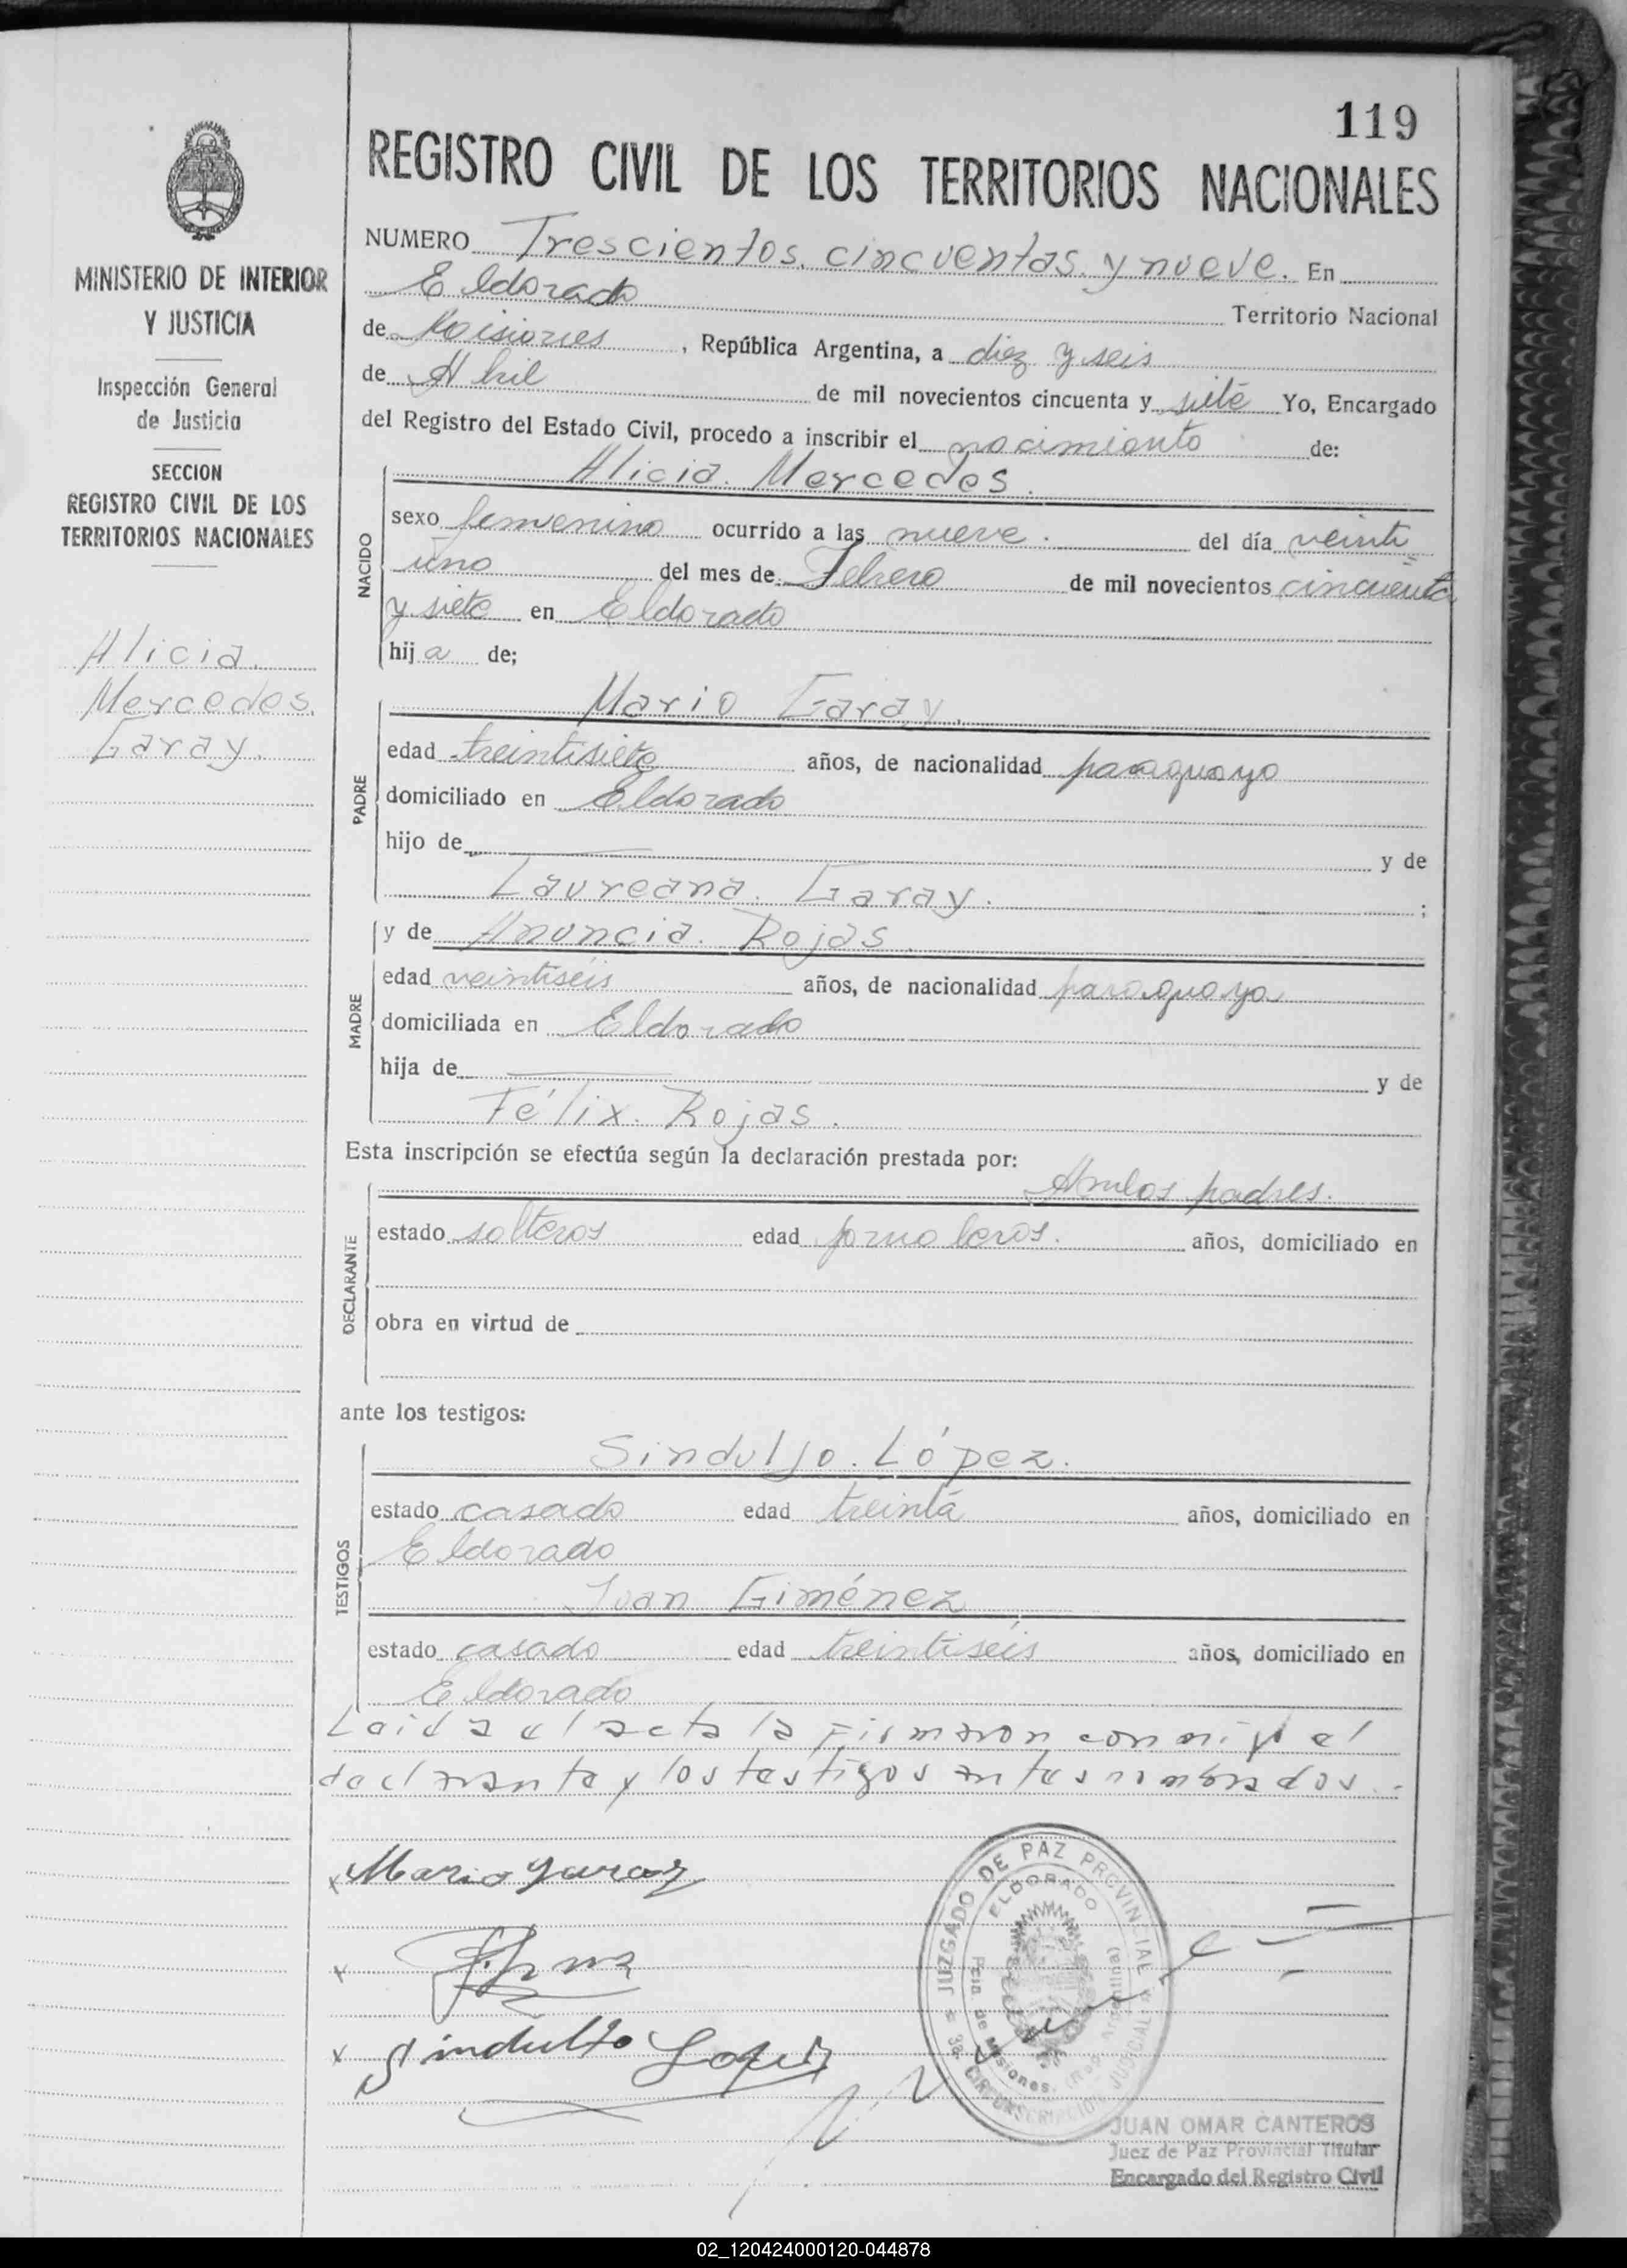 119
REGISTRO CIVIL DE LOS TERRITORIOS NACIONALES
MINISTERIO DE INTERIOR
Y JUSTICIA
Inspección General
de Justicia
SECCION
REGISTRO CIVIL DE LOS
TERRITORIOS NACIONALES
Alicia
Mercedes
Garay.
NUMERO Trescientos cincuentas y nueve. En
Eldorado Territorio Nacional
de Misiones, República Argentina, a diez y seis
de Abril de mil novecientos cincuenta y siete Yo, Encargado
del Registro del Estado Civil, procedo a inscribir el nacimiento de:
Alicia Mercedes.
NACIDO
sexo femenino ocurrido a las nueve. del día veinti=
uno del mes de Febrero de mil novecientos cincuenta
y siete en Eldorado
hija de;
Mario Garay.
PADRE
edad treintisiete años, de nacionalidad paraguayo
domiciliado en Eldorado
hijo de y de
Laureana Garay. ;
y de Anuncia Rojas.
MADRE
edad veintiseis años, de nacionalidad paraguaya
domiciliada en Eldorado
hija de y de
Félix Rojas.
Esta inscripción se efectúa según la declaración prestada por:
Ambos padres.
DECLARANTE
estado solteros edad jornaleros. años, domiciliado en
obra en virtud de
ante los testigos:
Sindulfo López.
TESTIGOS
estado casado edad treinta años, domiciliado en
Eldorado
Juan Giménez
estado casado edad treintiséis años, domiciliado en
Eldorado
Leida el acta la firmaron conmigo el
declarante y los testigos antes nombrados.
x Mario Garay
x
x Sindulfo Lopez
JUZGADO DE PAZ PROVINCIAL
ELDORADO
Pcia. de Misiones. (Rep. Argentina)
3a. CIRCUNSCRIPCION JUDICIAL
JUAN OMAR CANTEROS
Juez de Paz Provincial Titular
Encargado del Registro Civil
02_120424000120-044878